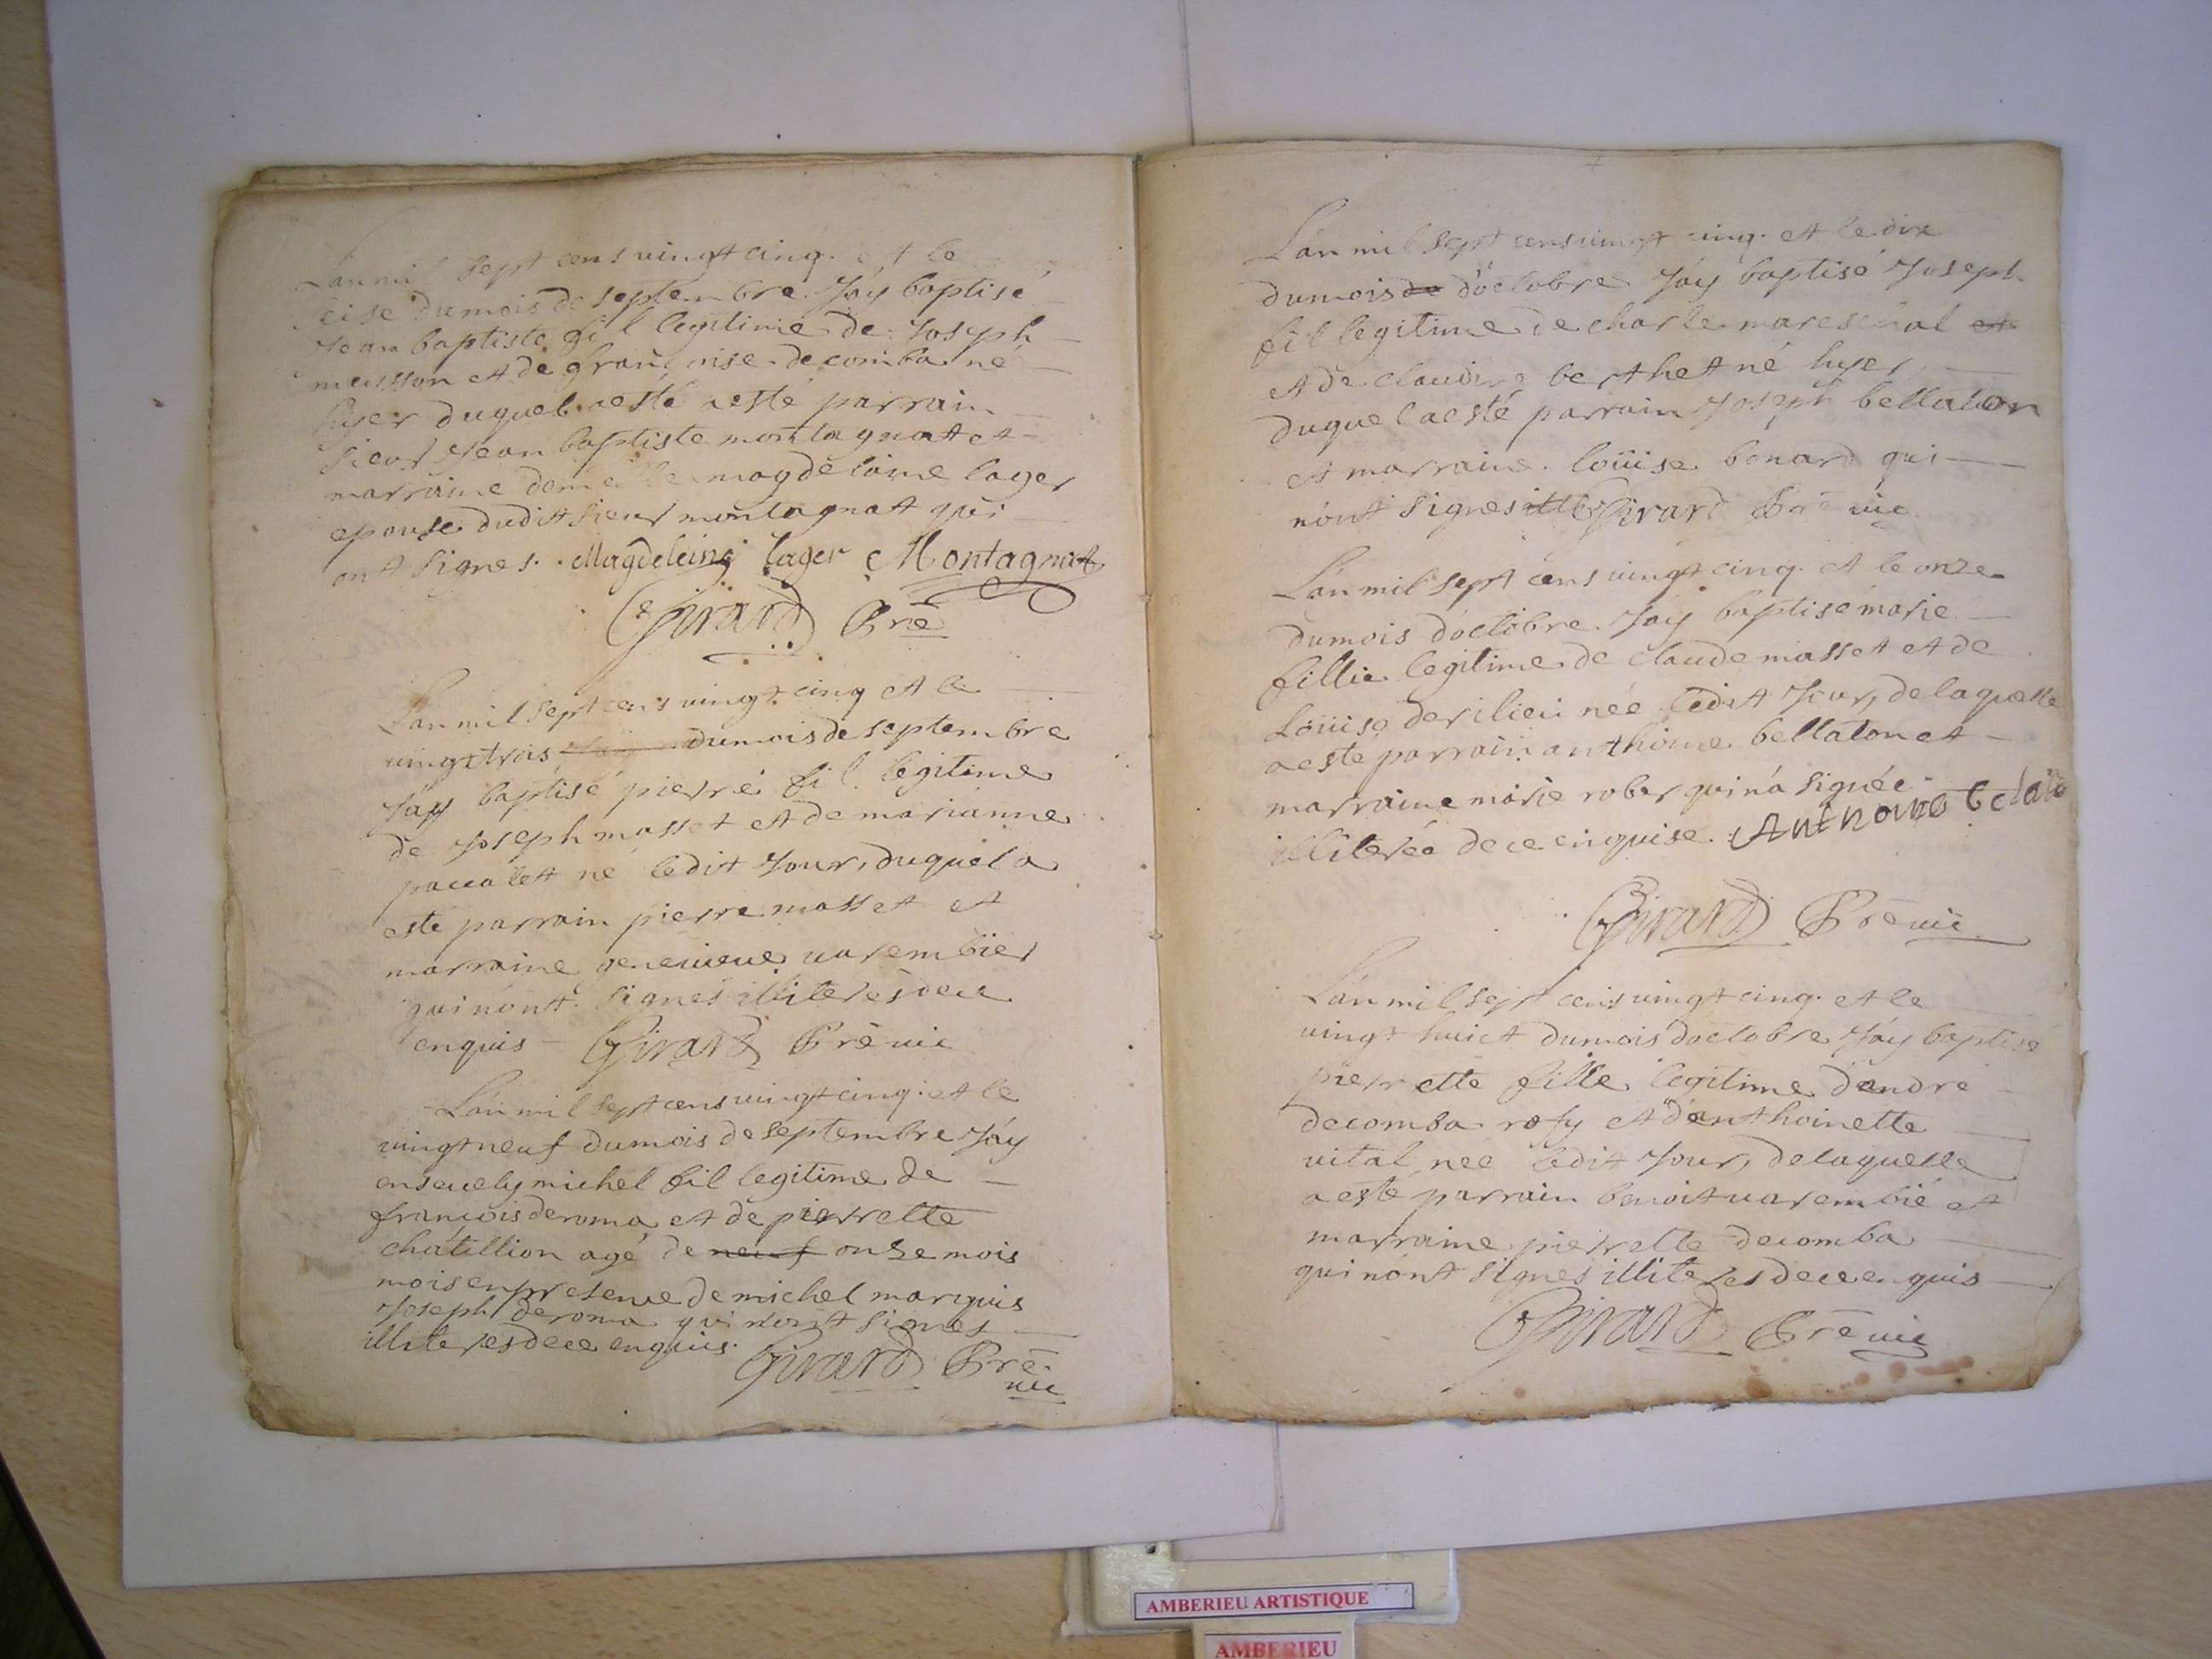 Lan mil sept cens vingt cinq. et le
seise dumois de septembre Jáy baptisé
Jean baptiste fil legitime de Joseph
musson et de françoise decomba né
hyer duquel aesté aesté parrain
sieur Jean baptiste montagnat et
marraine demelle magdeleine lager
epouse dudit sieur montagnat qui
ont signes. Magdeleine lager Montagnat
Girard Pre
Lán mil sept cens vingt cinq et le
vingt trois dumois de septembre
Jáy baptisé pierre fil legitime
de Joseph masset et de marianne
paccalett né ledit Jour, duquel a
esté parrain pierre masset et
marraine genevieve varembier
qui nónt signés illiterés dece
enquis Girard Pre vic
Lán mil sept cens vingt cinq. et le
vingt neuf dumois de septembre Jáy
ensevely michel fil legitime de
françois deroma et de pierrette
chátillion agé de neuf onse mois
mois en presence de michel marquis
Joseph deroma qui nónt signes
illiteres dece enquis. Girard Pre.
vic
Lán mil sept cens vingt cinq. et le dix
dumois de dóctobre Jáy baptisé Joseph
fil legitime de charle mareschal et
et de claudine berthet né hyer
duquel aesté parrain Joseph bellaton
et marraine loüise benard qui
nónt signes Girard Pre vic
Lán mil sept cens vingt cinq. et le onze
dumois dóctobre Jáy baptisé marie
fillie legitime de claude masset et de
Loüise derilieu née ledit Jour, delaquelle
aeste parrain anthoine bellaton et
marraine marie rober qui ná signée
illiterée dece enquise. Anthoine
Girard Pre vic
Lán mil sept cens vingt cinq. et le
vingt huict dumois dóctobre Jáy baptisé
pierrette fille legitime dándré
decomba rafy et dánthoinette
vital née ledit Jour, delaquelle
aesté parrain benoit varembié et
marraine pierrette decomba
qui nónt signes illiteres dece enquis
Girard Pre vic
AMBERIEU ARTISTIQUE
AMBERIEU